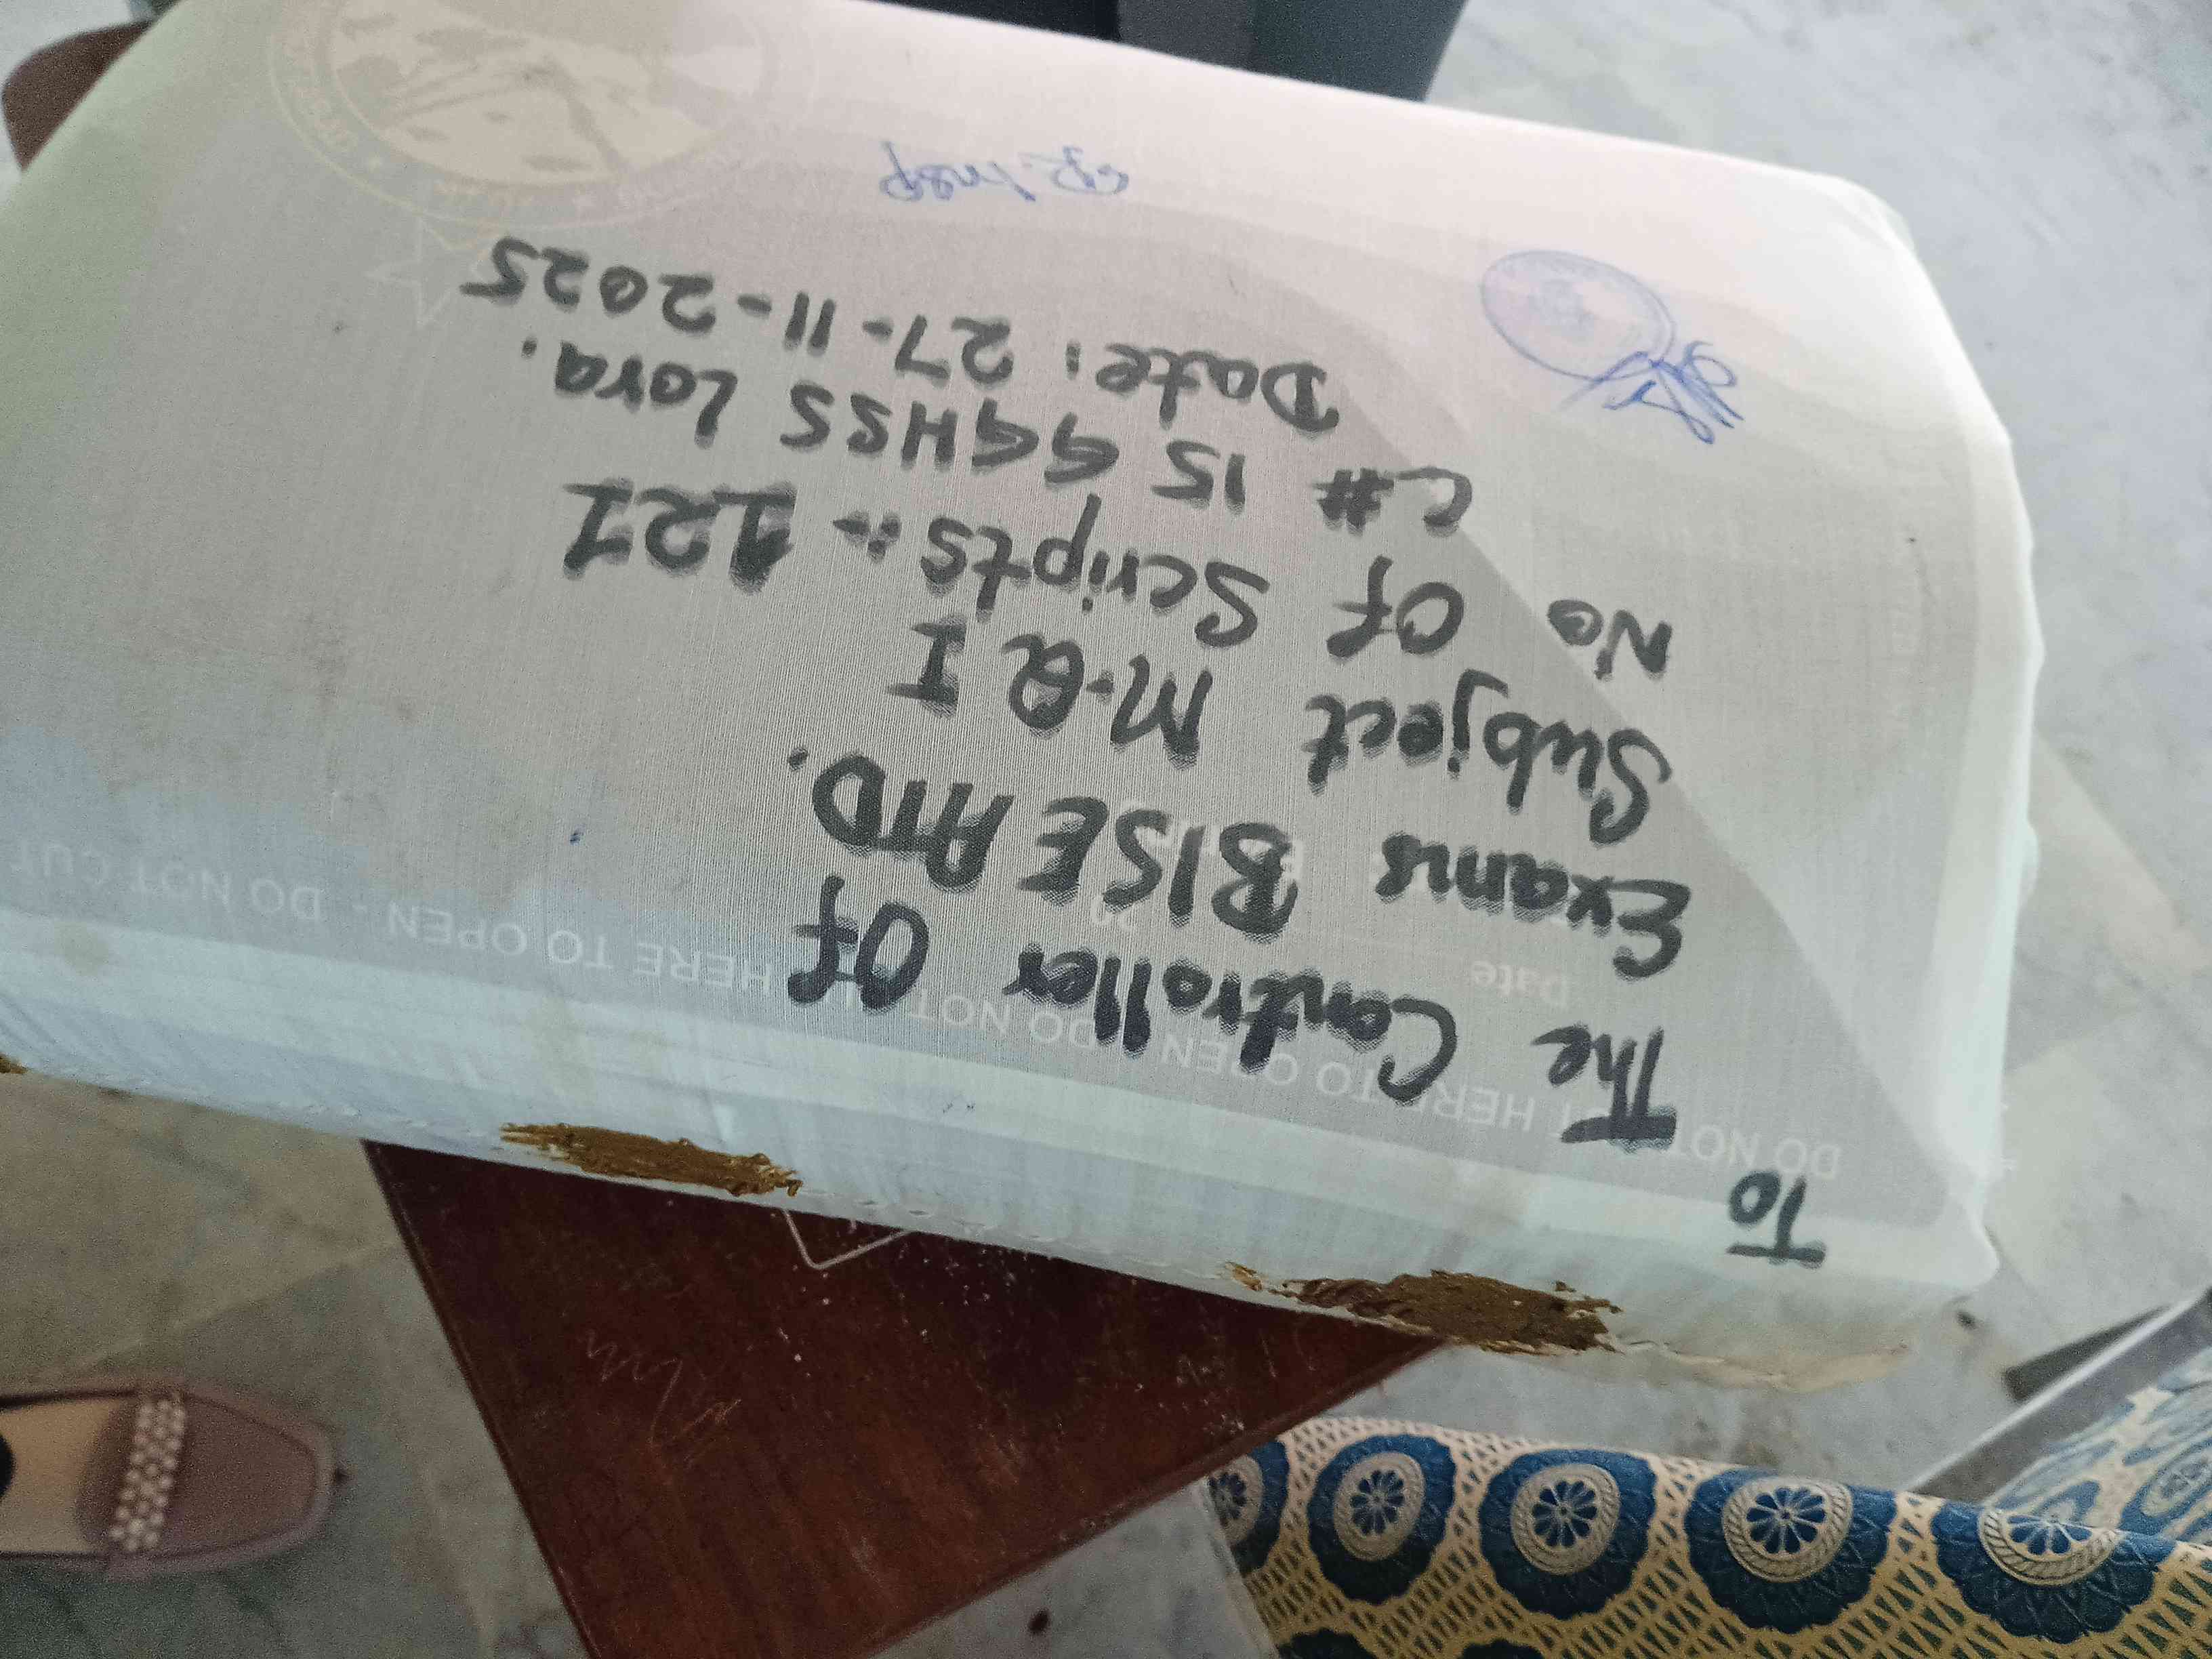 To
The Controller Of
Exams BISE ATD.
Subject M.Q I
No Of Scripts:- 121
C# 15 GGHSS Lora.
Date: 27-11-2025
DO NOT HERE TO OPEN - DO NOT HERE TO OPEN - DO NOT CUT
Date